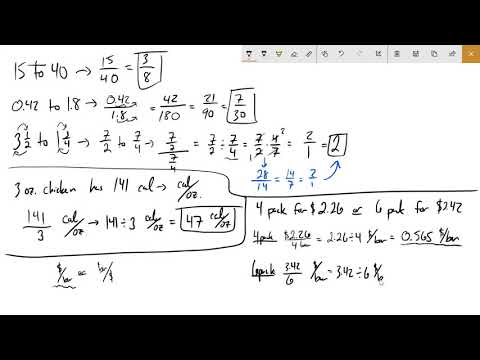 15 to 40 → 15/40 = 3/8
0.42 to 1.8 → 0.42/1.8 = 42/180 = 21/90 = 7/30
3 1/2 to 1 3/4 → 7/2 to 7/4 → 7/2 / 7/4 = 7/2 ÷ 7/4 = 7/2 · 4/7 2 1 = 2/1 = 2
28/14 = 14/7 = 2/1
3 oz. chicken has 141 cal → cal/oz.
141/3 cal/oz → 141 ÷ 3 cal/oz = 47 cal/oz.
$/bar or bar/$
4 pack for $2.26 or 6 pack for $3.42
4 pack $2.26/4 bar = 2.26 ÷ 4 $/bar = 0.565 $/bar
6 pack 3.42/6 $/bar = 3.42 ÷ 6 $/b